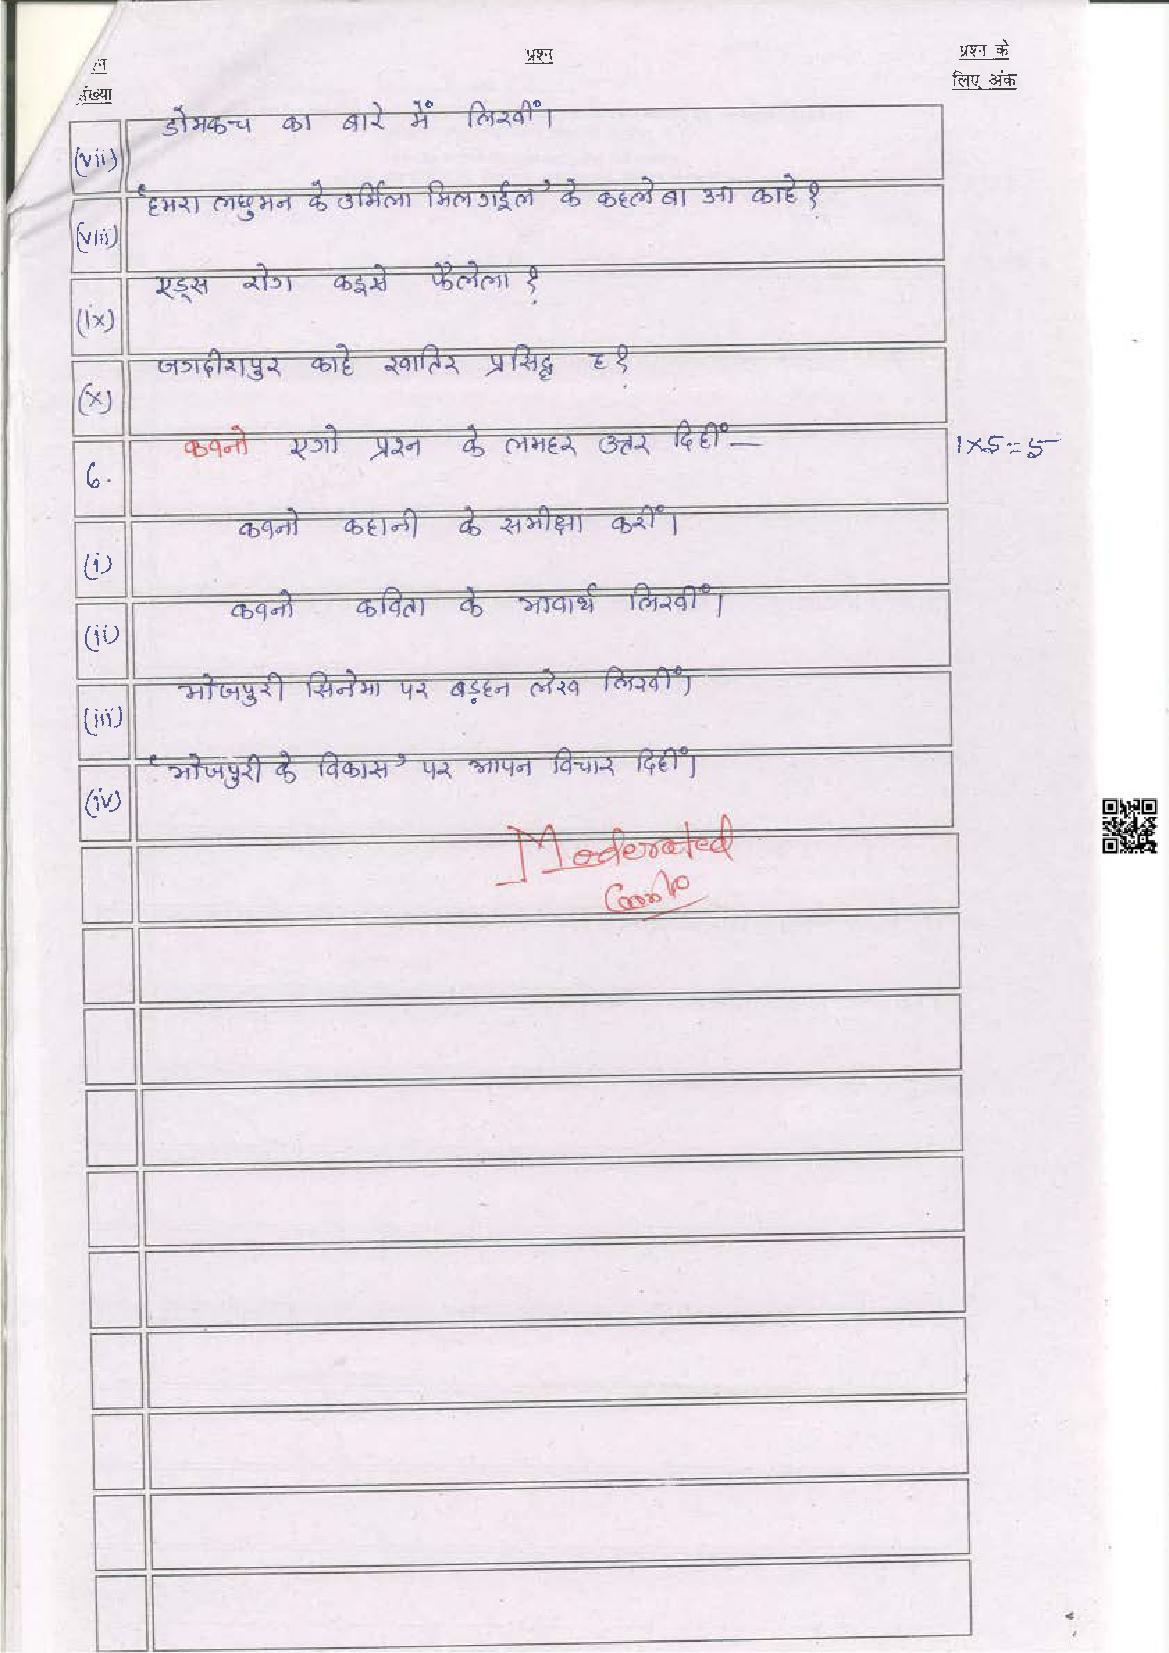 प्रश्न
प्रश्न के
लिए अंक
(vii) डोमकच का बारे में लिखीं।
(viii) 'हमरा लछुमन के उर्मिला मिल गईल' के कहले बा आ काहे?
(ix) एड्स रोग कइसे फैलेला?
(x) जगदीशपुर काहे खातिर प्रसिद्ध ह?
6. कवनो एगो प्रश्न के लमहर उत्तर दिहीं— 1×5=5
(i) कवनो कहानी के समीक्षा करीं।
(ii) कवनो कविता के भावार्थ लिखीं।
(iii) भोजपुरी सिनेमा पर बड़हन लेख लिखीं।
(iv) 'भोजपुरी के विकास' पर आपन विचार दिहीं।
Moderated